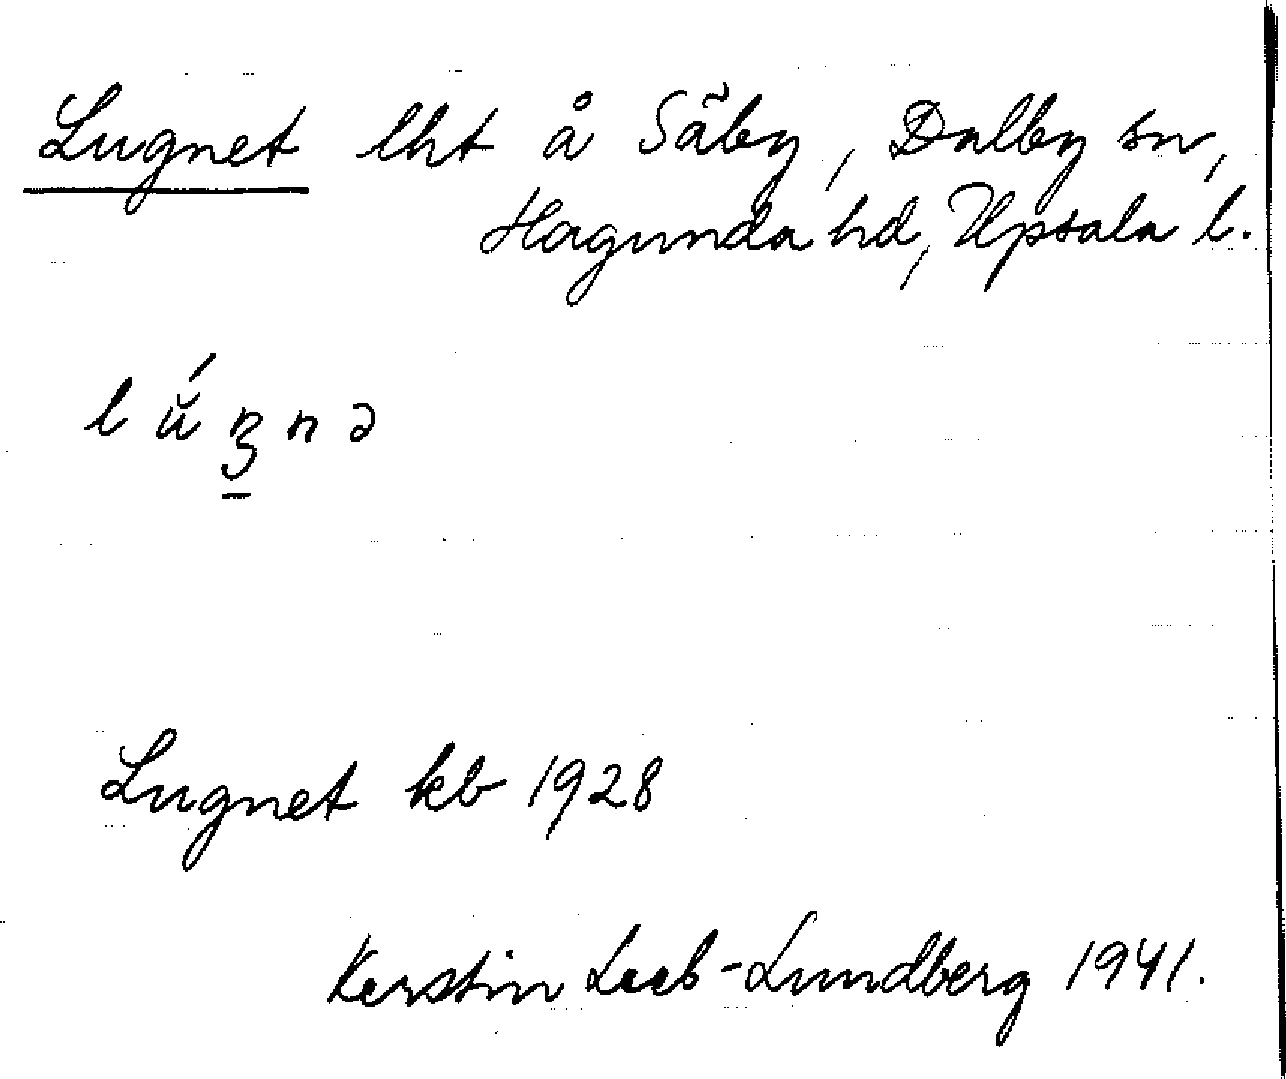 Lugnet lht å Säby, Dalby sn,
Hagunda hd, Upsala l.
Lugnet kb 1928
Kerstin Leeb-Lundberg 1941.